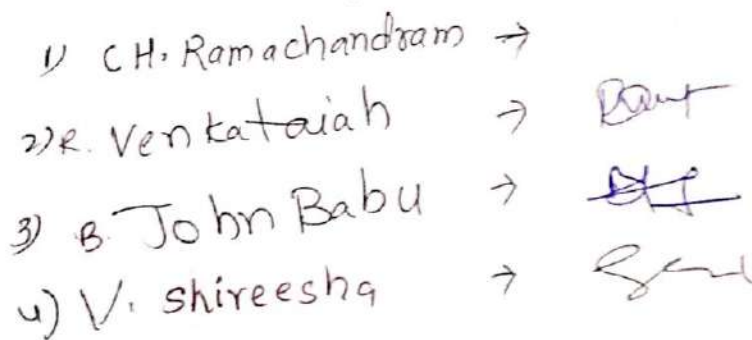 1) CH. Ramachandram →
2) R. Venkataiah →
3) B. John Babu →
4) V. Shireesha →